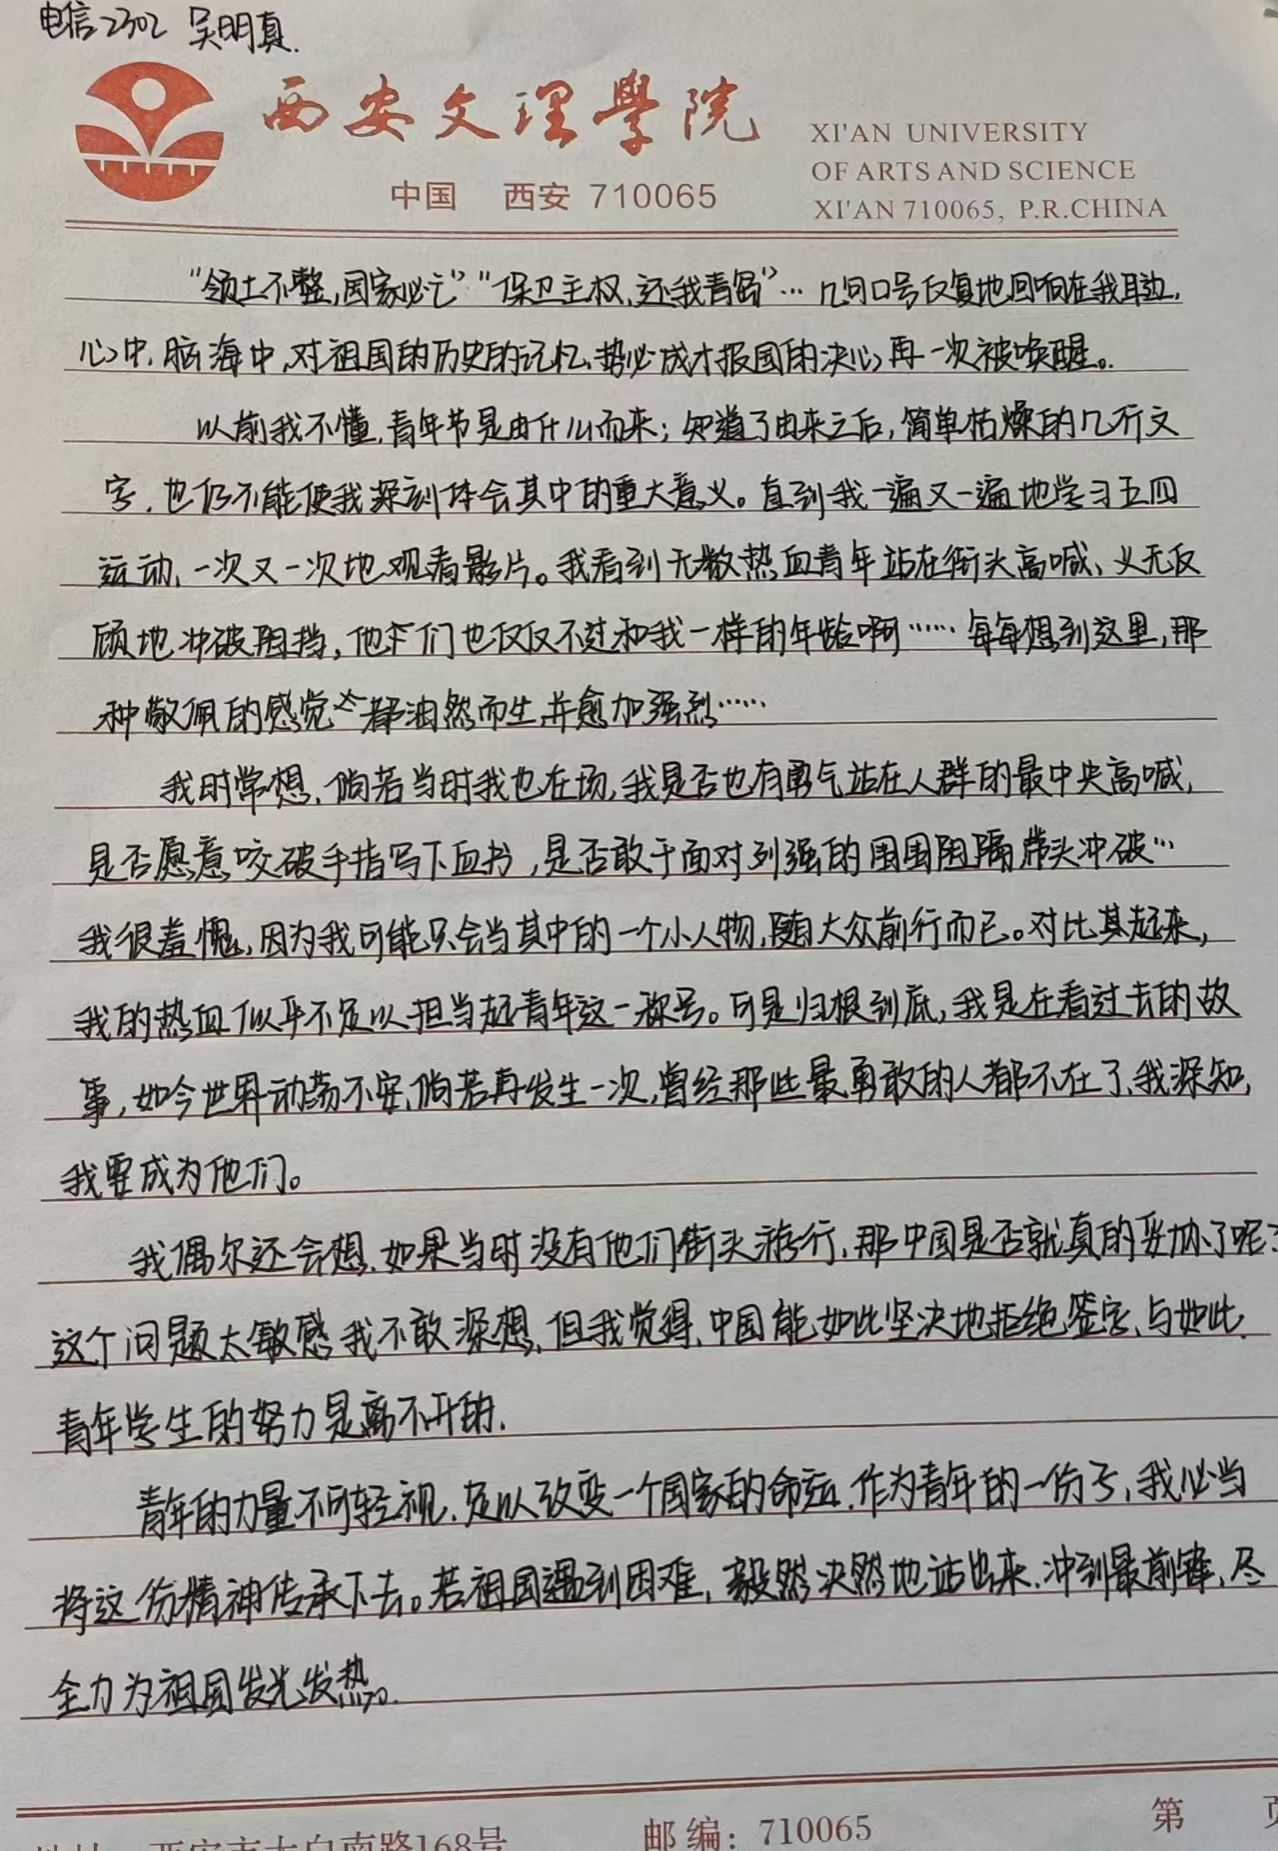 电信2302 吴明真.
西安文理學院
XI'AN UNIVERSITY
OF ARTS AND SCIENCE
中国 西安 710065
XI'AN 710065, P.R.CHINA
“领土不整,国家必亡”“保卫主权,还我青岛”… 几句口号反复地回响在我耳边,
心中,脑海中,对祖国的历史的记忆、势必成才报国的决心再一次被唤醒。
以前我不懂,青年节是由什么而来；知道了由来之后,简单枯燥的几行文
字,也仍不能使我深刻体会其中的重大意义。直到我一遍又一遍地学习五四
运动,一次又一次地观看影片。我看到无数热血青年站在街头高喊、义无反
顾地冲破阻挡,他们也仅仅不过和我一样的年龄啊…… 每每想到这里,那
种敬佩的感觉都油然而生,并愈加强烈……
我时常想,倘若当时我也在场,我是否也有勇气站在人群的最中央高喊,
是否愿意咬破手指写下血书,是否敢于面对列强的围困阻隔带头冲破…
我很羞愧,因为我可能只会当其中的一个小人物,随大众前行而已。对比其起来,
我的热血似乎不足以担当起青年这一称号。可是归根到底,我是在看过去的故
事,如今世界动荡不安,倘若再发生一次,曾经那些最勇敢的人都不在了,我深知,
我要成为他们。
我偶尔还会想,如果当时没有他们街头游行,那中国是否就真的妥协了呢?
这个问题太敏感我不敢深想,但我觉得,中国能如此坚决地拒绝签字、与如此
青年学生的努力是离不开的.
青年的力量不可轻视,足以改变一个国家的命运.作为青年的一份子,我必当
将这份精神传承下去。若祖国遇到困难,毅然决然地站出来,冲到最前锋,尽
全力为祖国发光发热。
西安市太白南路168号 邮编：710065 第 页